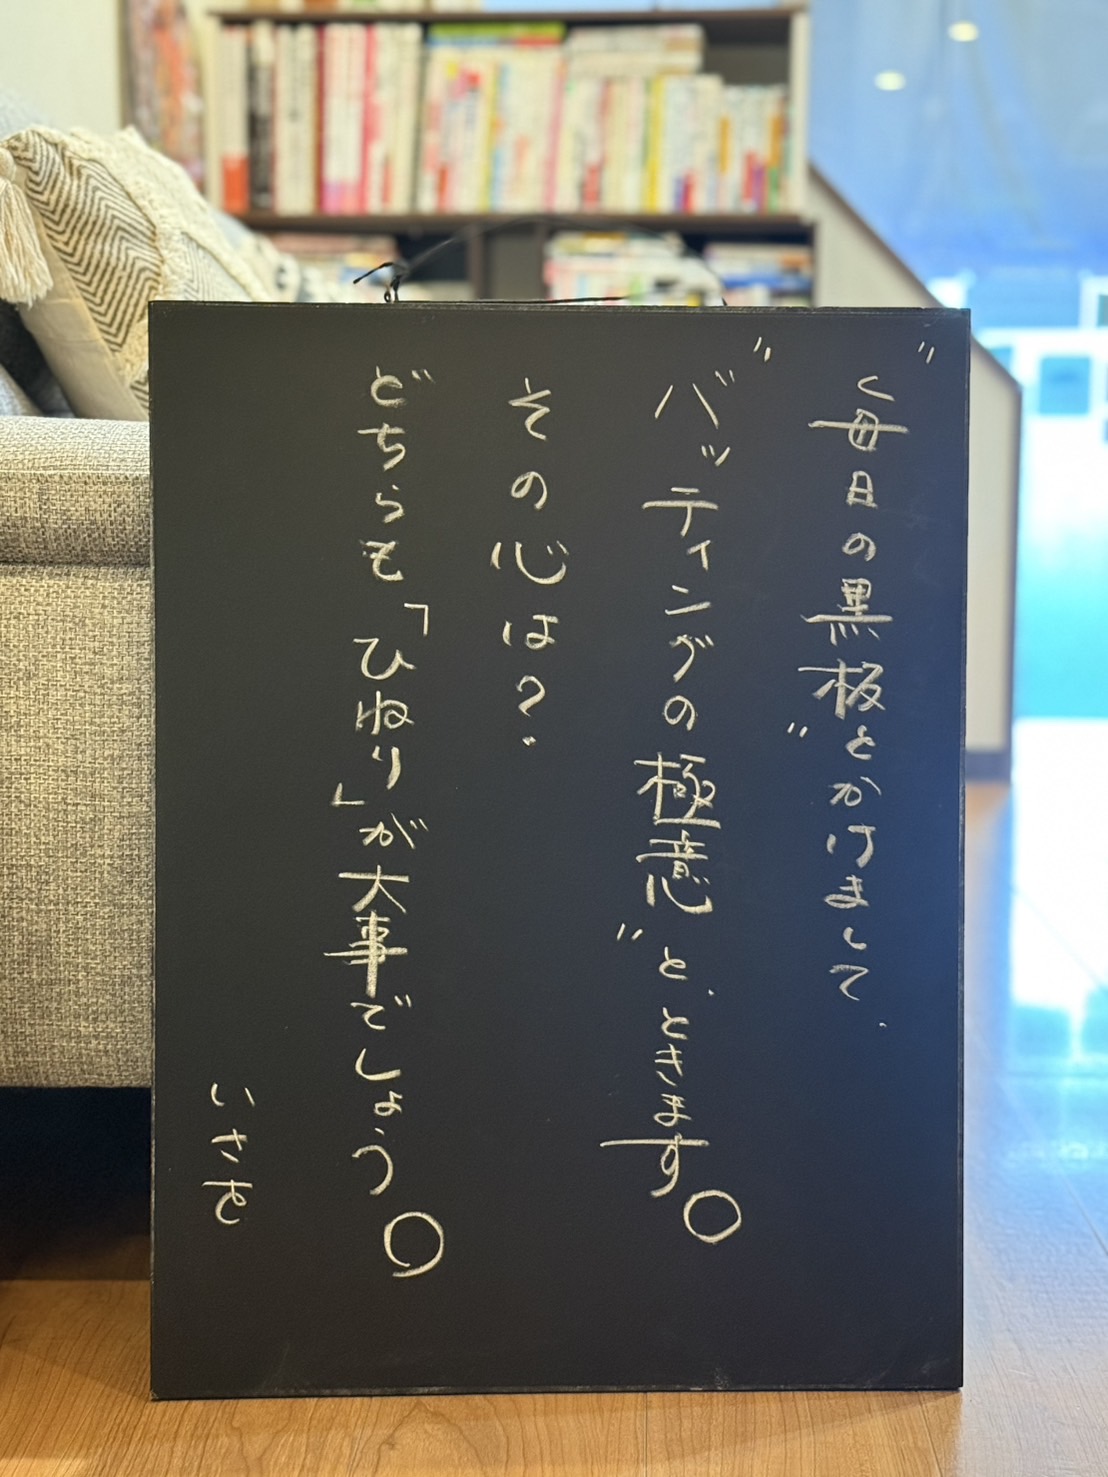 〝毎日の黒板〟とかけまして、
〝バッティングの極意〟と、ときます。
その心は?
どちらも「ひねり」が大事でしょう。
いさを